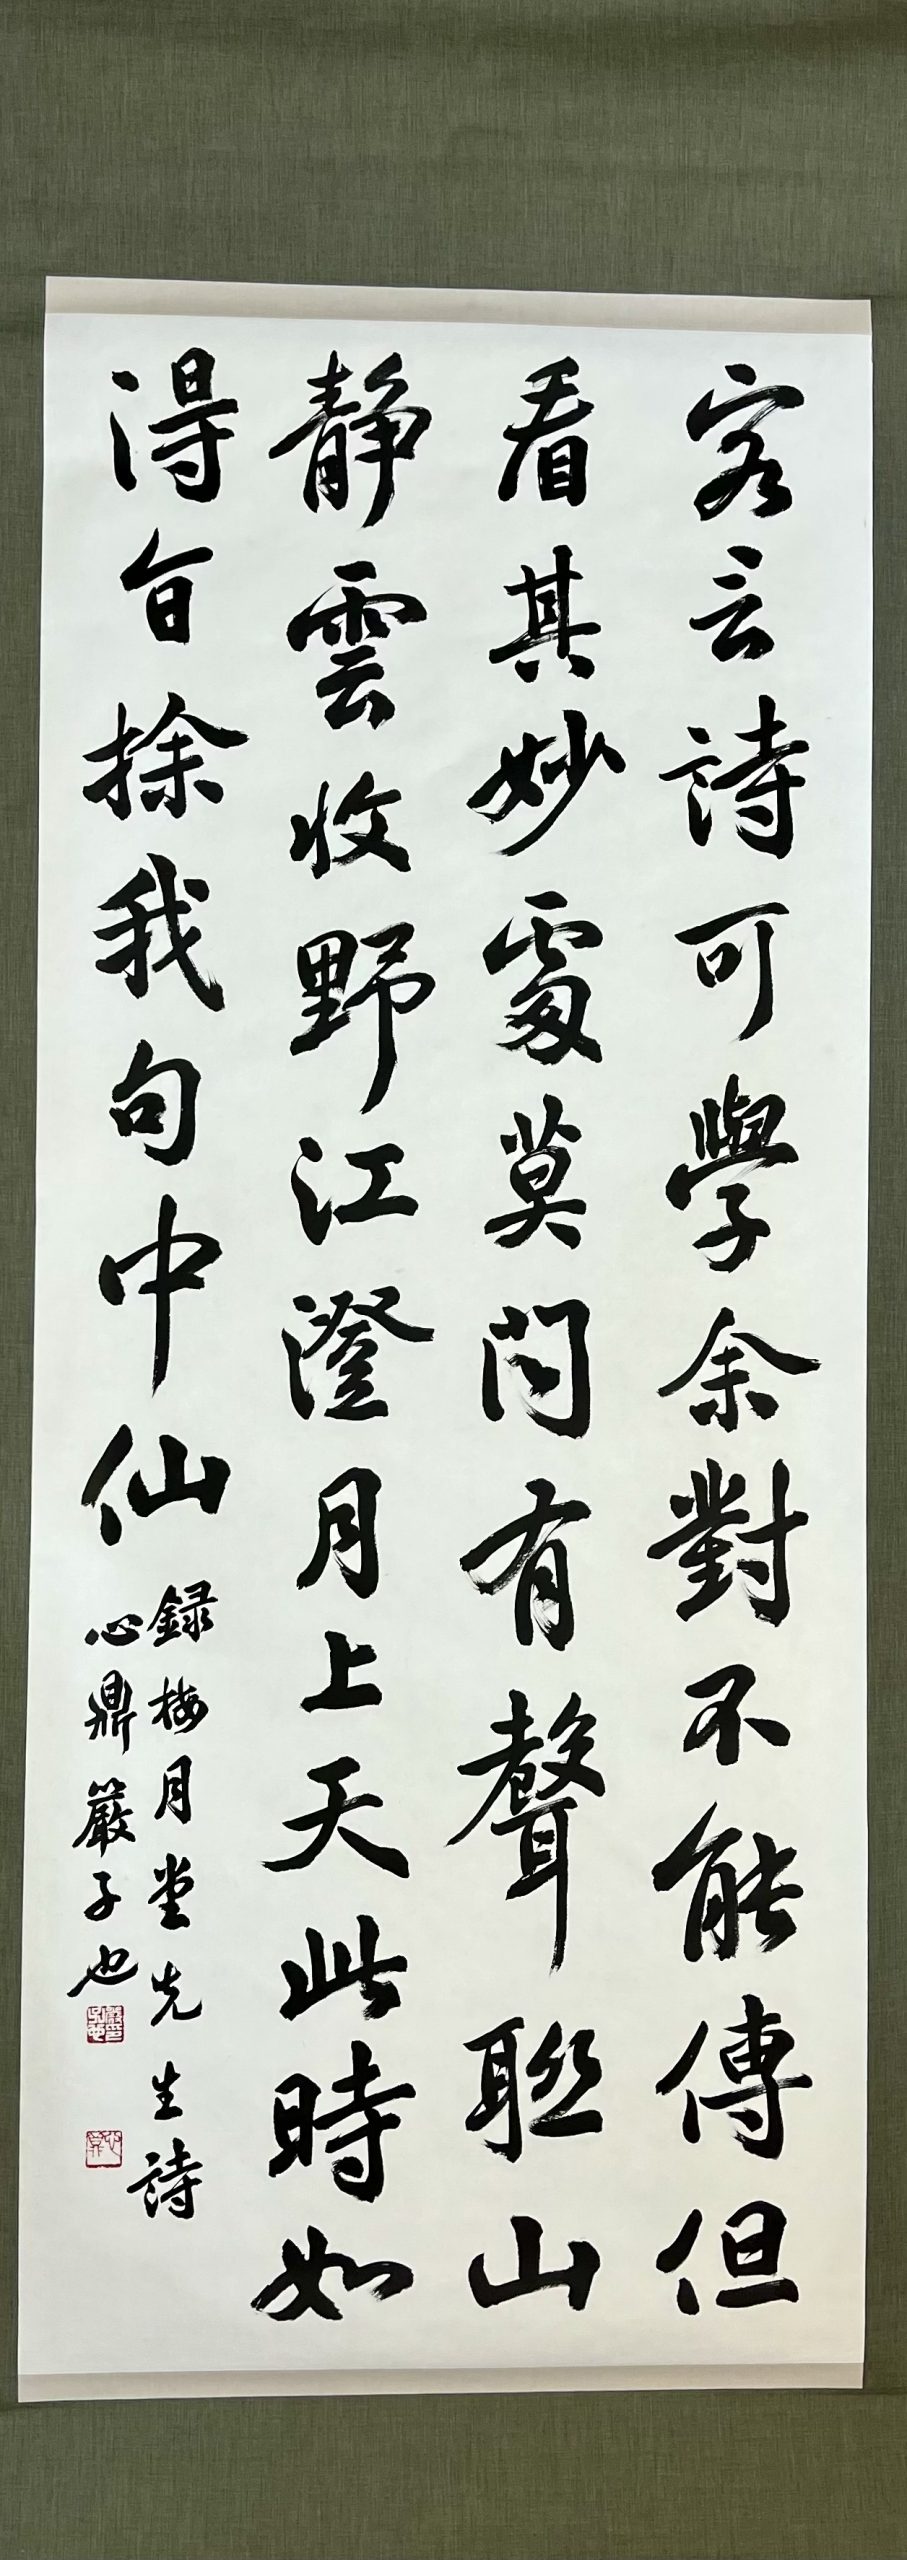 客言詩可學余對不能傳但
看其妙處莫問有聲聯山
静雲收野江澄月上天此時如
得旨探我句中仙
録梅月堂先生詩
心鼎嚴子也